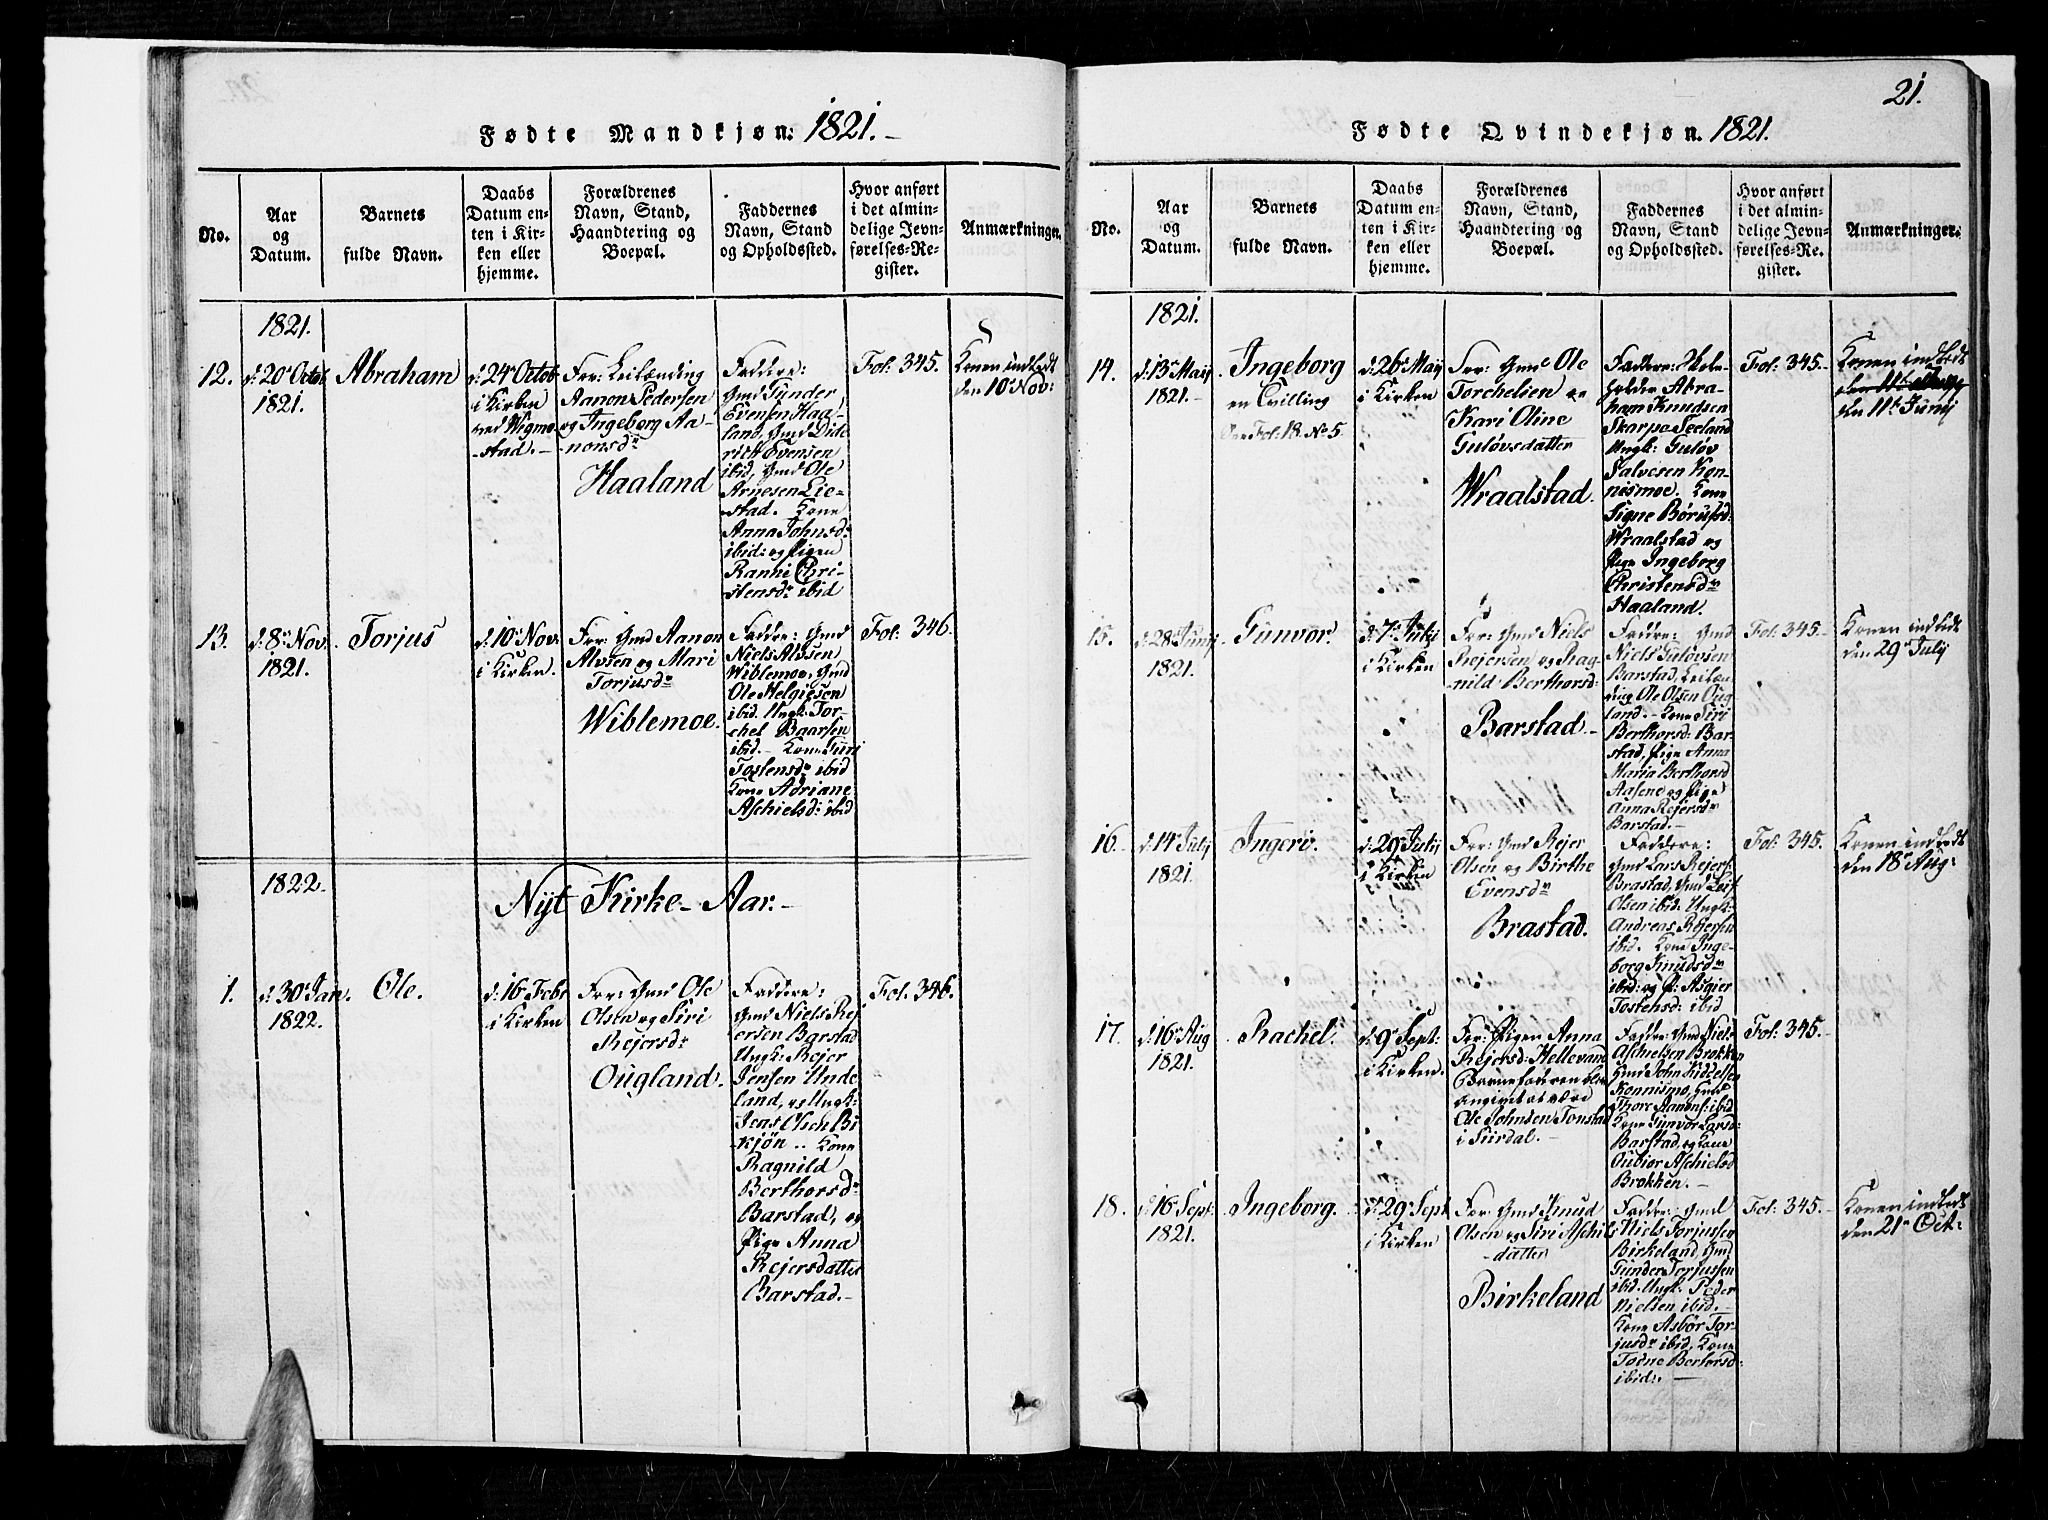 Fødte Mandkjøn: 1821.-
No.
Aar
og
Datum.
Barnets
fulde Navn.
Daabs
Datum en-
ten i Kir-
ken eller
hjemme.
Forældrenes
Navn, Stand,
Haandtering og
Boepæl.
Faddernes
Navn, Stand
og Opholdssted.
Hvor anført
i det almin-
delige Jevn-
førelses-Re-
gister.
Anmærkninger.
1821.
12.
d: 20de Octob
1821.
Abraham
d: 24de Octob
i Kirken
ved Wigmo-
stad.-
For: Leilænding
Aanon Pedersen
og Ingeborg Aa-
nonsdr
Haaland
Faddere:
Gmd Gunder
Evensen Haa-
land, Gmd Dide
rich Evensen
ibid, Gmd Ole
Arnesen Lie-
stad. Kone
Anna Johnsd:
ibid: og Pigen
Ranni Chri-
stensdr ibid
Fol: 345.
Konen indledt
den 10de Nov:
13.
d: 8de Nov:
1821.
Torjus
d: 10de Nov:
i Kirken.
For: Gmd Aanon
Alvsen og Mari
Torjusdr
Wiblemoe.
Faddre: Gmd
Niels Alvsen
Wiblemoe, Gmd
Ole Helgiesen
ibid. Ungk: Tor-
chel Baarsen
ibid.- Kone Guri
Tostensdr ibid
Kone Adriane
Aschielsd: ibid
Fol: 346.
1822.
Nyt Kirke-Aar.-
1.
d: 30de Jan.
1822.
Ole.
d: 16 Febr
i Kirken
For: Gmd Ole
Olsen og Siri
Rejersdr
Ougland.
Faddere:
Gmd Niels Rej-
ersen Barstad
Ungk: Rejer
Jensen Unde
land, og Ungk:
Jens Olsen Bi
-kjøn.. Kone
Ragnild
Berthorsdr
Barstad, og
Pige Anna
Rejersdatter
Barstad.-
Fol. 346.
21.
Fødte Qvindekjøn. 1821.
No.
Aar
og
Datum.
Barnets
fulde Navn.
Daabs
Datum en-
ten i Kir-
ken eller
hjemme.
Forældrenes
Navn, Stand,
Haandtering og
Boepæl.
Faddernes
Navn, Stand
og Opholdssted.
Hvor anført
i det almin-
delige Jevn-
førelses-Re-
gister.
Anmærkninger.
1821.
14.
d: 13de Maij
1821.-
Ingeborg
en Tvilling
Fol: 18. No 5.
d: 26de Maij
i Kirken
For: Gmd Ole
Torchelsen og
Kari Oline
Guløvsdatter
Wraalstad.
Faddere: Skole-
holder Abra-
ham Knudsen
Skarpe Seeland
Ungk: Guløv
Salvesen Kon-
nismoe. Kone
Signe Børufsd:
Wraalstad og
Pige Ingeborg
Christensdr
Haaland.
Fol: 345.-
Konen indledt
den 11te Junij
15.
d: 28de Junij
1821.
Gunvor.
d: 7de Julij
i Kirken
For: Gmd Niels
Rejersen og Rag-
nild Berthorsd:
Barstad.-
Faddre: Gmd
Niels Guløvsen
Barstad, Leilæn-
ding Ole Olsen Oug-
land.- Kone Siri
Berthorsd: Bar-
stad, Pige Anna
Maria Berthorsd
Aasene og Pige
Anna Rejersdr
Barstad.-
Fol: 345.-
Konen indledt
den 29de Julij
16.
d: 14de Julij
1821.
Ingeri.
d: 29de Julij
i Kirken
For: Gmd Rejer
Olsen og Birthe
Evensdr
Brastad.
Faddere:
Gmd Lars Rejers:
Brastad, Gmd Leif
Olsen ibid: Ungk:
Andreas Rejersen
ibid. Kone Inge-
borg Knudsdr
ibid: og P: Asgier
Tostensd: ibid
Fol: 345.
Konen indledt
den 18de Aug:
17.
d: 16de Aug
1821.
Rachel.
d: 9de Sept:
i Kirken.
For: Pigen Anna
Rejersd: Hellevand
Barnefaderen blev
angivet at være
Ole Johnsen Tonstad
i Siirdal.-
Faddre: Gmd Niels
Aschielsen Brokken
Gmd John Kiddelsen
Konnismo, Gmd
Thore Aanons: ibid
Kone Gunvor Larsd:
Barstad, og Kone
Oubior Aschielsd
Brokken.-
Fol: 345.-
18.
d: 16 Sept:
1821.
Ingeborg.
d: 29de Sept
i Kirken
For: Gmd Knud
Olsen og Siri Aschils
-datter
Birkeland
Faddre: Gmd
Niels Torjussen
Birkeland, Gmd
Gunder Torjussen
ibid. Ungk: Peder
Nielsen ibid.-
Kone Asbør Tor-
jusdr ibid, Kone
Todne Bertorsd:
ibid:.-
Fol: 345.-
Konen indledt
den 21de Oct: